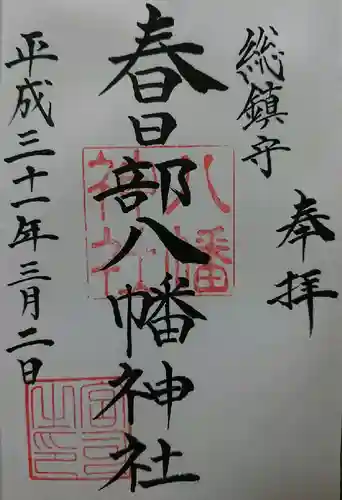 奉拝
総鎮守
春日部八幡神社
八幡
神社
平成三十一年三月二日
宮司之印